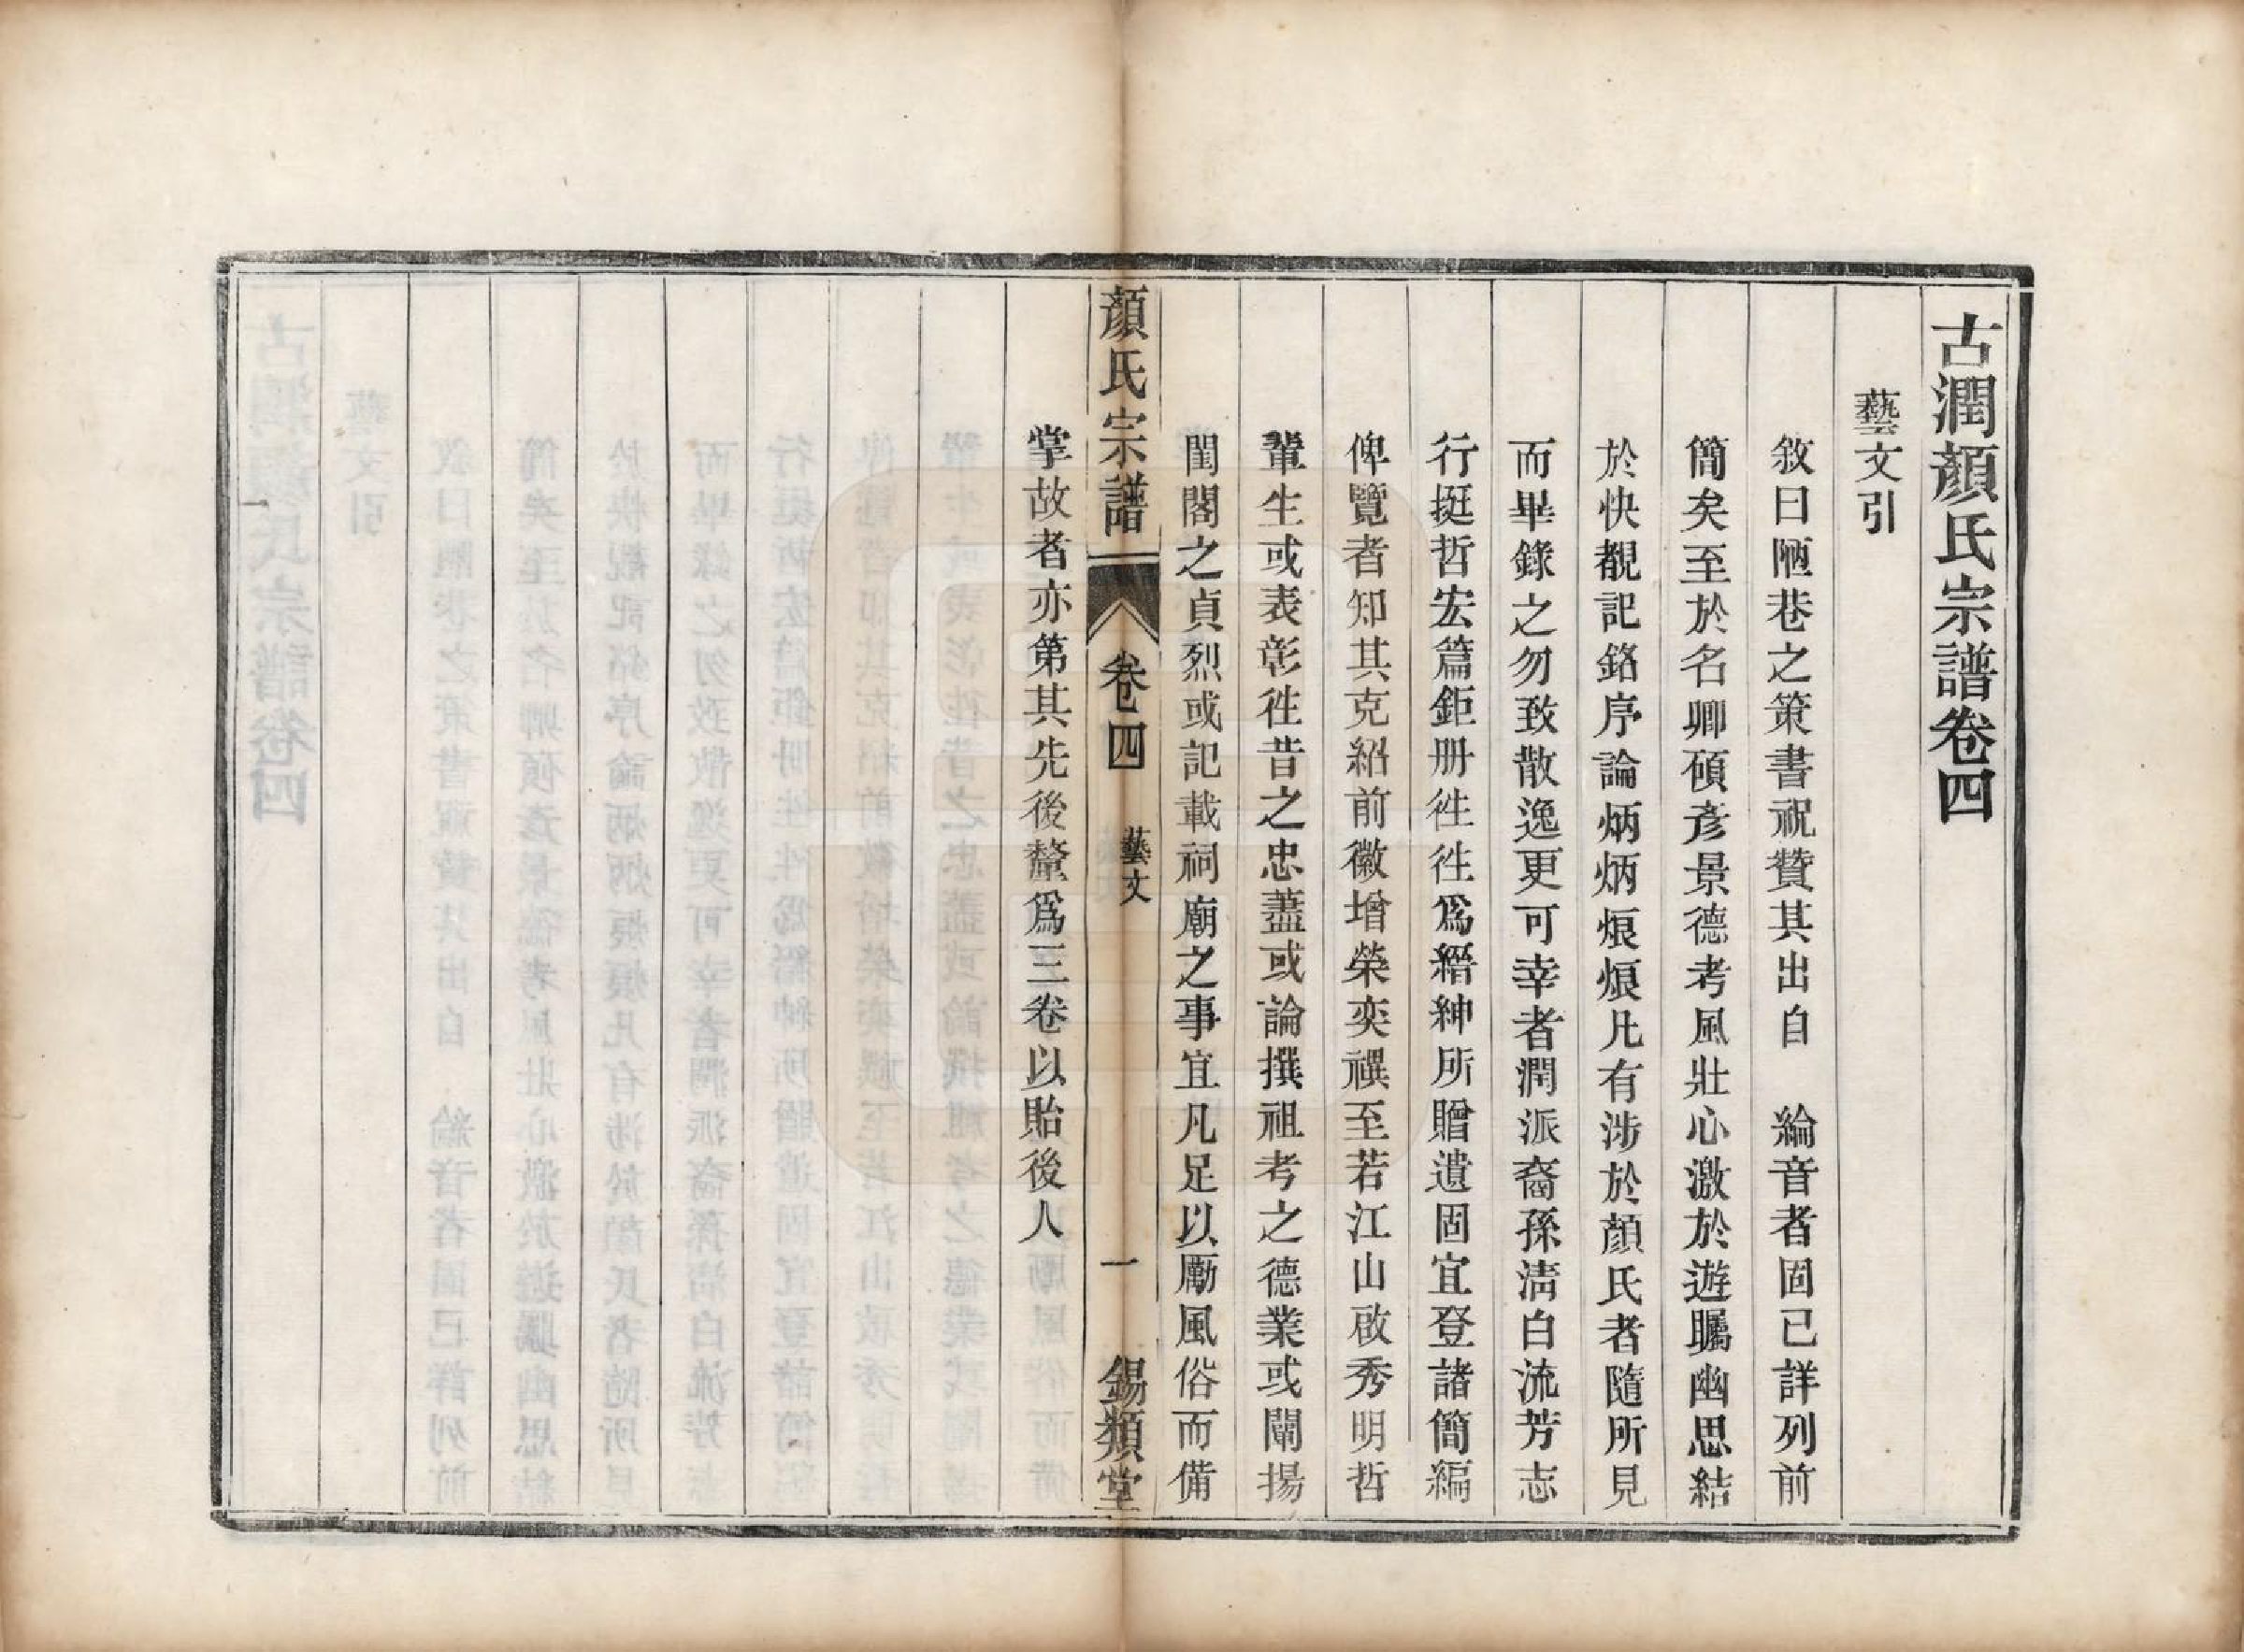 古潤顏氏宗譜卷四
藝文引
敘曰陋巷之策書祝贊其出自　綸音者固已詳列前
簡矣至於名卿碩彥景德考風壯心激於遊矚幽思結
於快覩記銘序論炳炳烺烺凡有涉於顏氏者隨所見
而畢錄之勿致散逸更可幸者潤派裔孫淸白流芳志
行挺哲宏篇鉅册徃徃爲縉紳所贈遺固宜登諸簡編
俾覽者知其克紹前徽增榮奕禩至若江山啟秀明哲
輩生或表彰徃昔之忠藎或論撰祖考之德業或闡揚
閨閣之貞烈或記載祠廟之事宜凡足以勵風俗而備
顏氏宗譜　卷四　藝文　一　錫類堂
掌故者亦第其先後釐爲三卷以貽後人